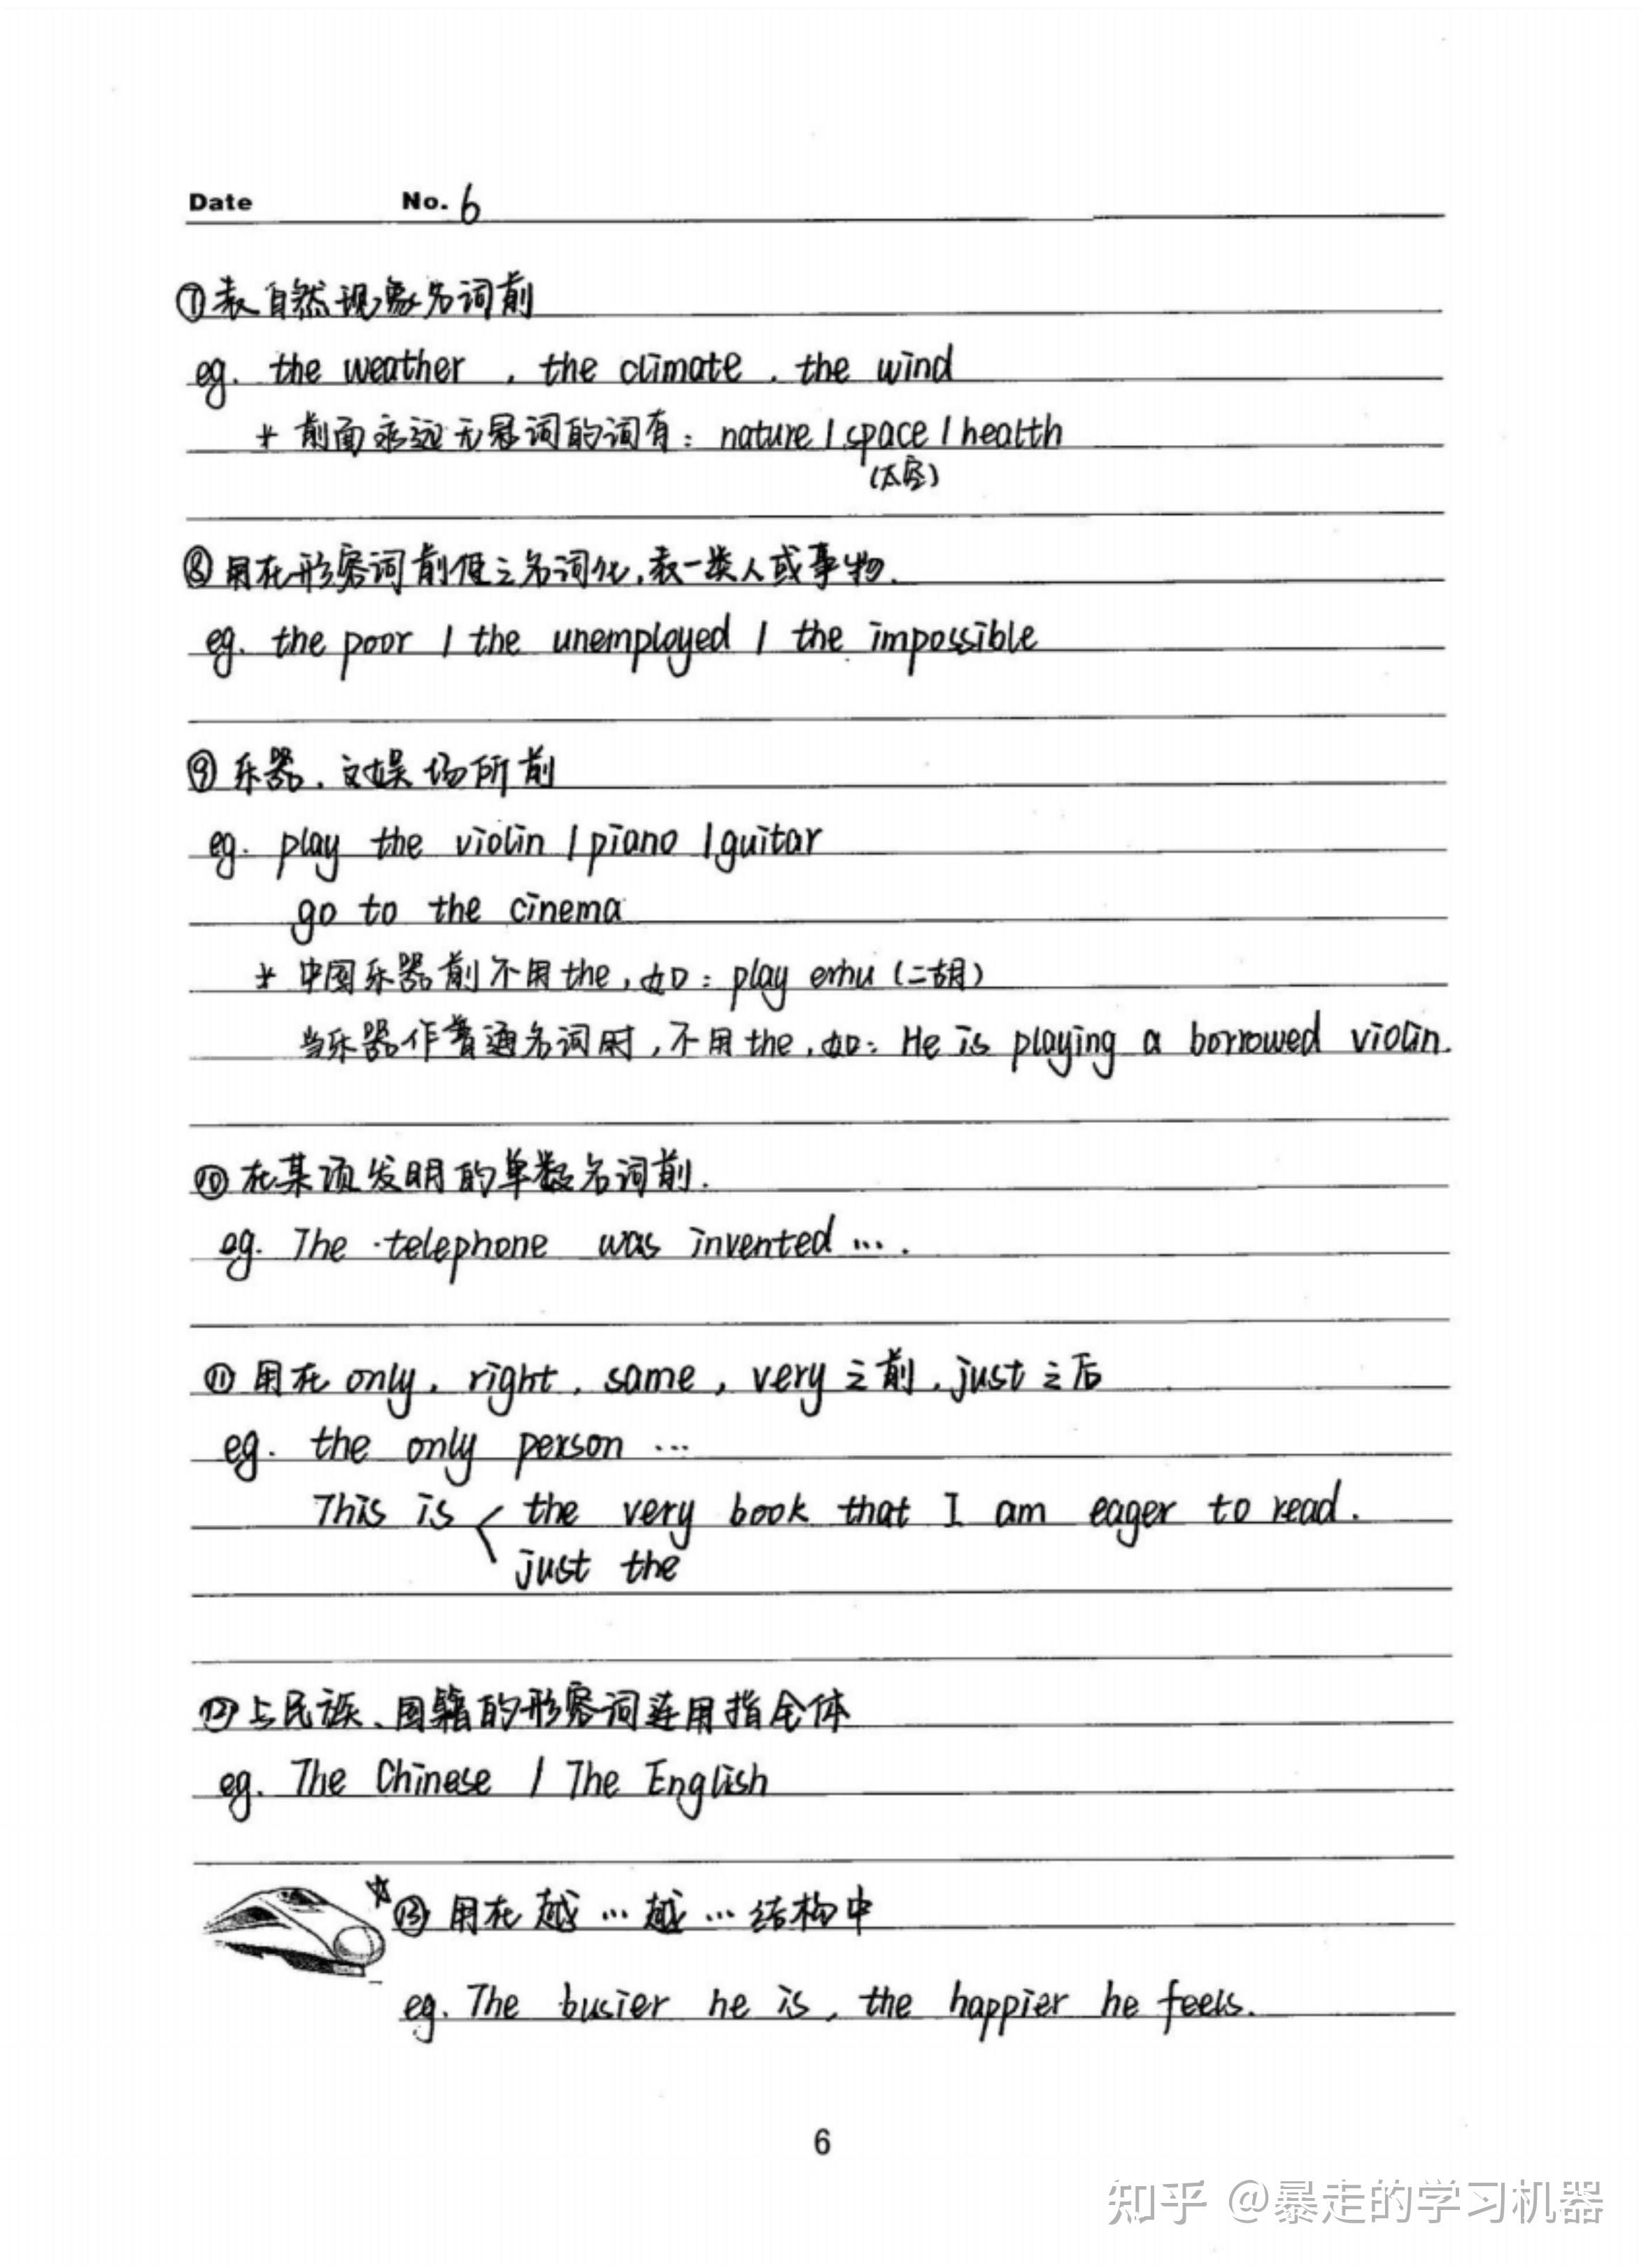 Date No. 6
⑦表自然现象名词前
eg. the weather , the climate , the wind
* 前面永远无冠词的词有：nature / space / health
(太空)
⑧用在形容词前使之名词化,表一类人或事物.
eg. the poor / the unemployed / the impossible
⑨乐器、文娱场所前
eg. play the violin / piano / guitar
go to the cinema
* 中国乐器前不用the,如：play erhu (二胡)
当乐器作普通名词时,不用the,如：He is playing a borrowed violin.
⑩在某项发明的单数名词前.
eg. The telephone was invented ….
⑪用在only, right, same, very之前, just之后
eg. the only person …
This is the very book that I am eager to read.
just the
⑫与民族、国籍的形容词连用指全体
eg. The Chinese / The English
☆⑬用在越…越…结构中
eg. The busier he is, the happier he feels.
6
知乎 @暴走的学习机器